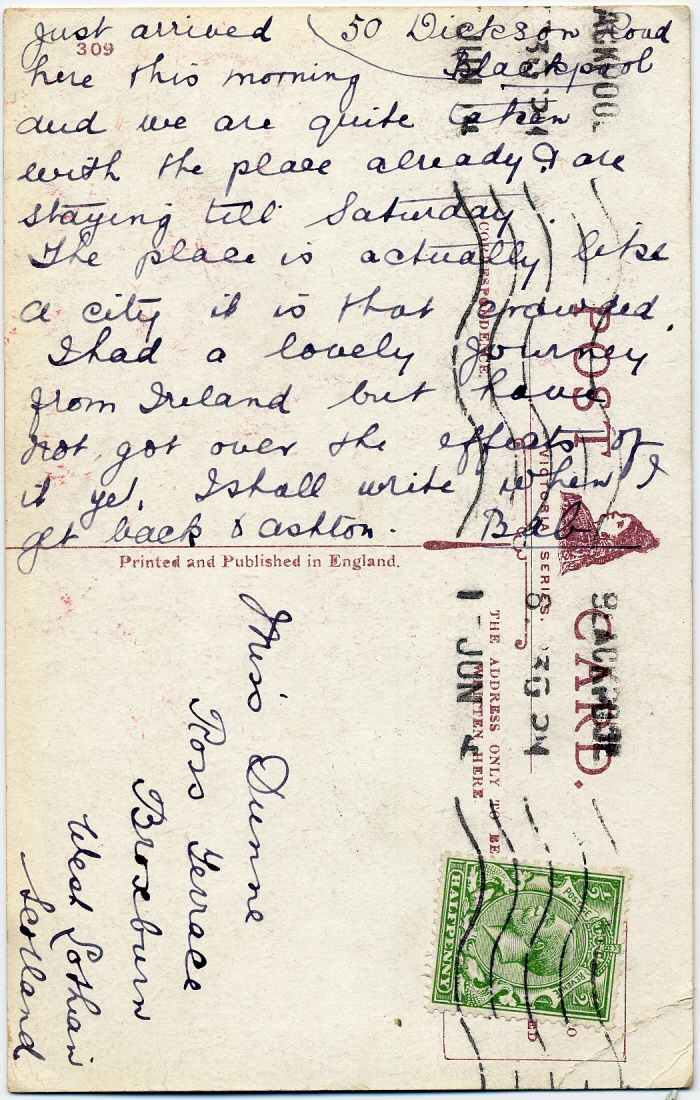 50 Dickson Road
Blackpool
just arrived
309
here this morning
and we are quite taken
with the place already & are
staying till Saturday.
The place is actually like
a city it is that crowded.
I had a lovely journey
from Ireland but have
not got over the effects of
it yet. I shall write when I
get back to Ashton. Bab
Printed and Published in England.
POST CARD.
VICTORIA SERIES.
CORRESPONDENCE.
THE ADDRESS ONLY TO BE
WRITTEN HERE
BLACKPOOL
JUN
Miss Dunne
Ross Terrace
Broxburn
West Lothian
Scotland
POSTAGE
REVENUE
HALFPENNY